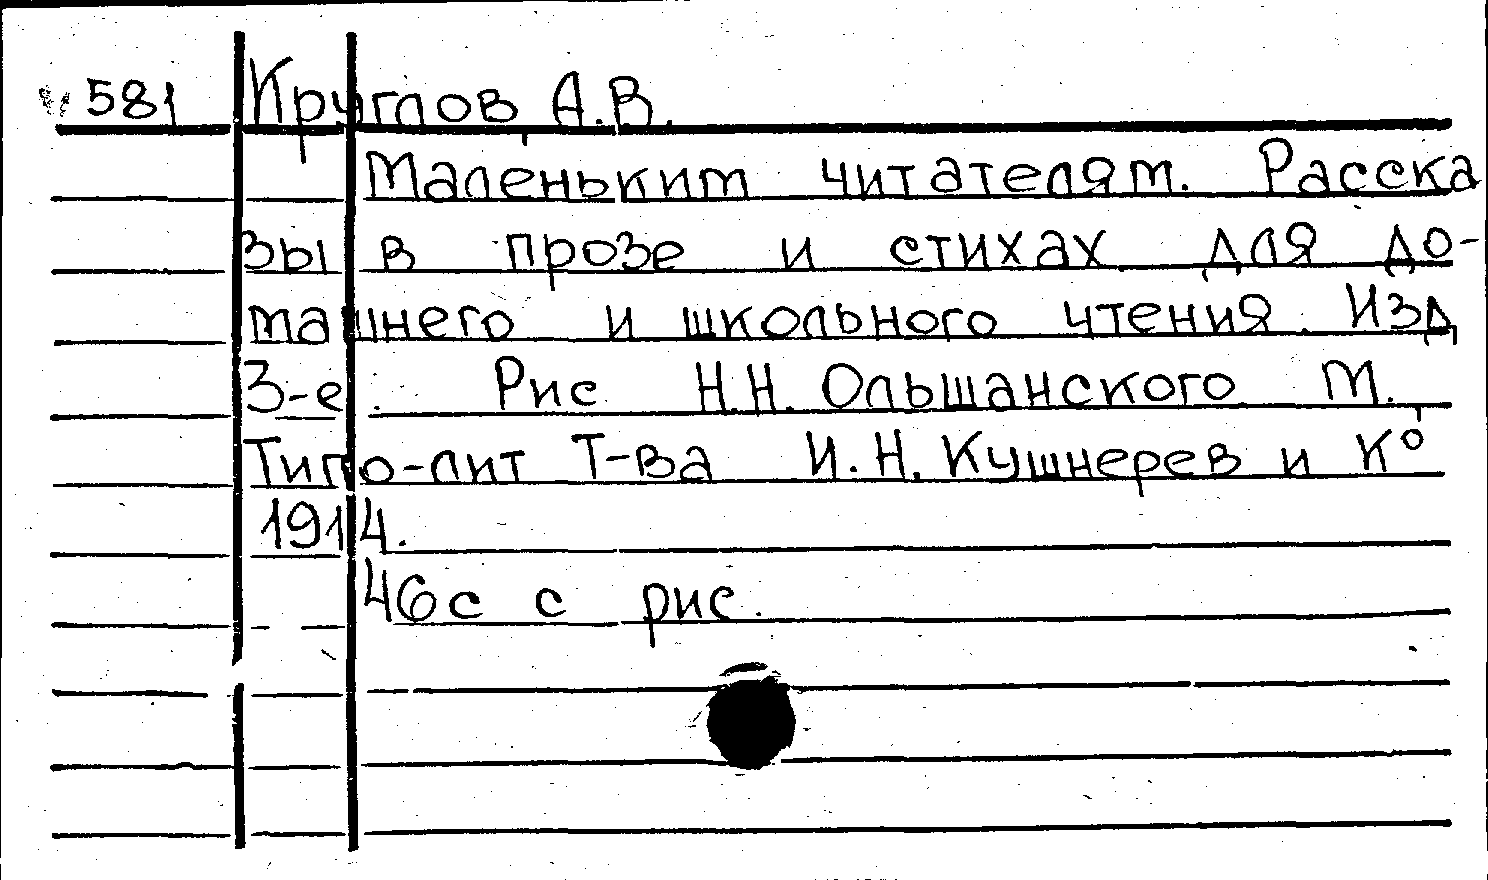 581 Круглов, А.В.
Маленьким читателям. Расска
зы в прозе и стихах для до-
машнего и школьного чтения. Изд
3-е. Рис Н.Н. Ольшанского М.,
Типо-лит Т-ва И.Н. Кушнерев и К°
1914.
46с с рис.